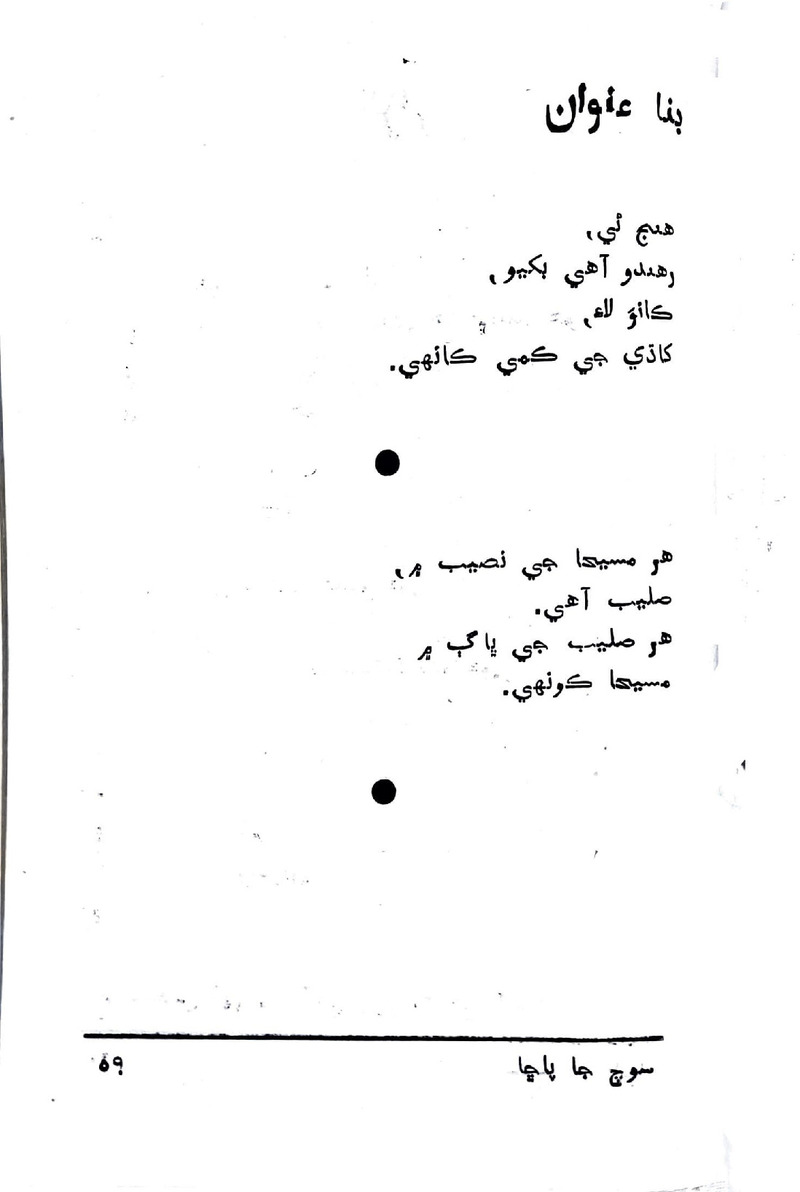 بنا عنوان
هنج ئي،
رهندو آهي بکيو،
ڪانوَ لاءِ،
کاڌي جي ڪمي ڪانهي.
هر مسيحا جي نصيب ۾،
صليب آهي.
هر صليب جي ڀاڳ ۾
مسيحا ڪونهي.
سوچ جا پاڇا
٥٩